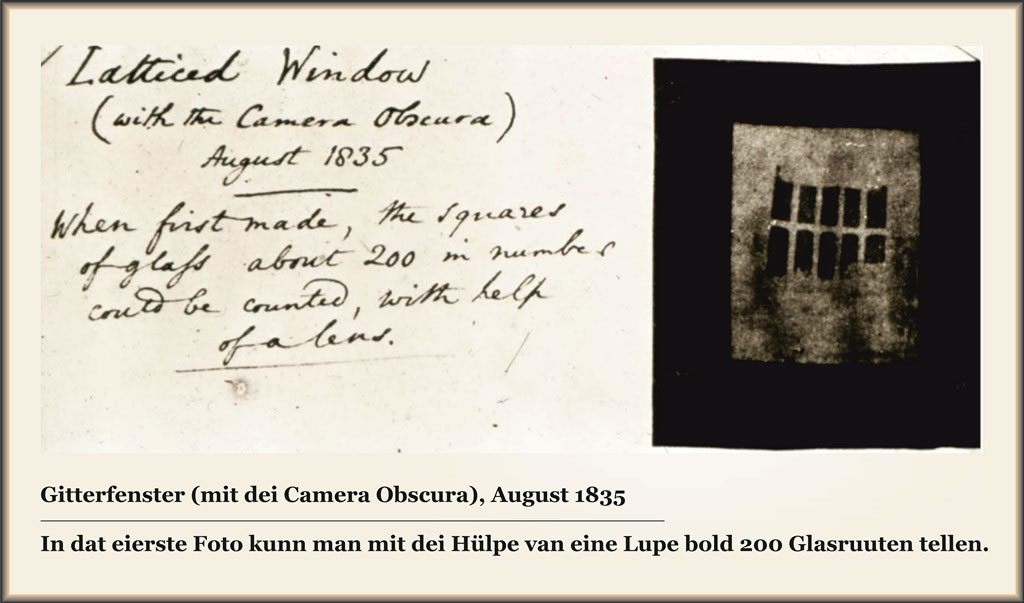 Latticed Window
(with the Camera Obscura)
August 1835
When first made, the squares
of glaſs about 200 in number
could be counted, with help
of a lens.
Gitterfenster (mit dei Camera Obscura), August 1835
In dat eierste Foto kunn man mit dei Hülpe van eine Lupe bold 200 Glasruuten tellen.